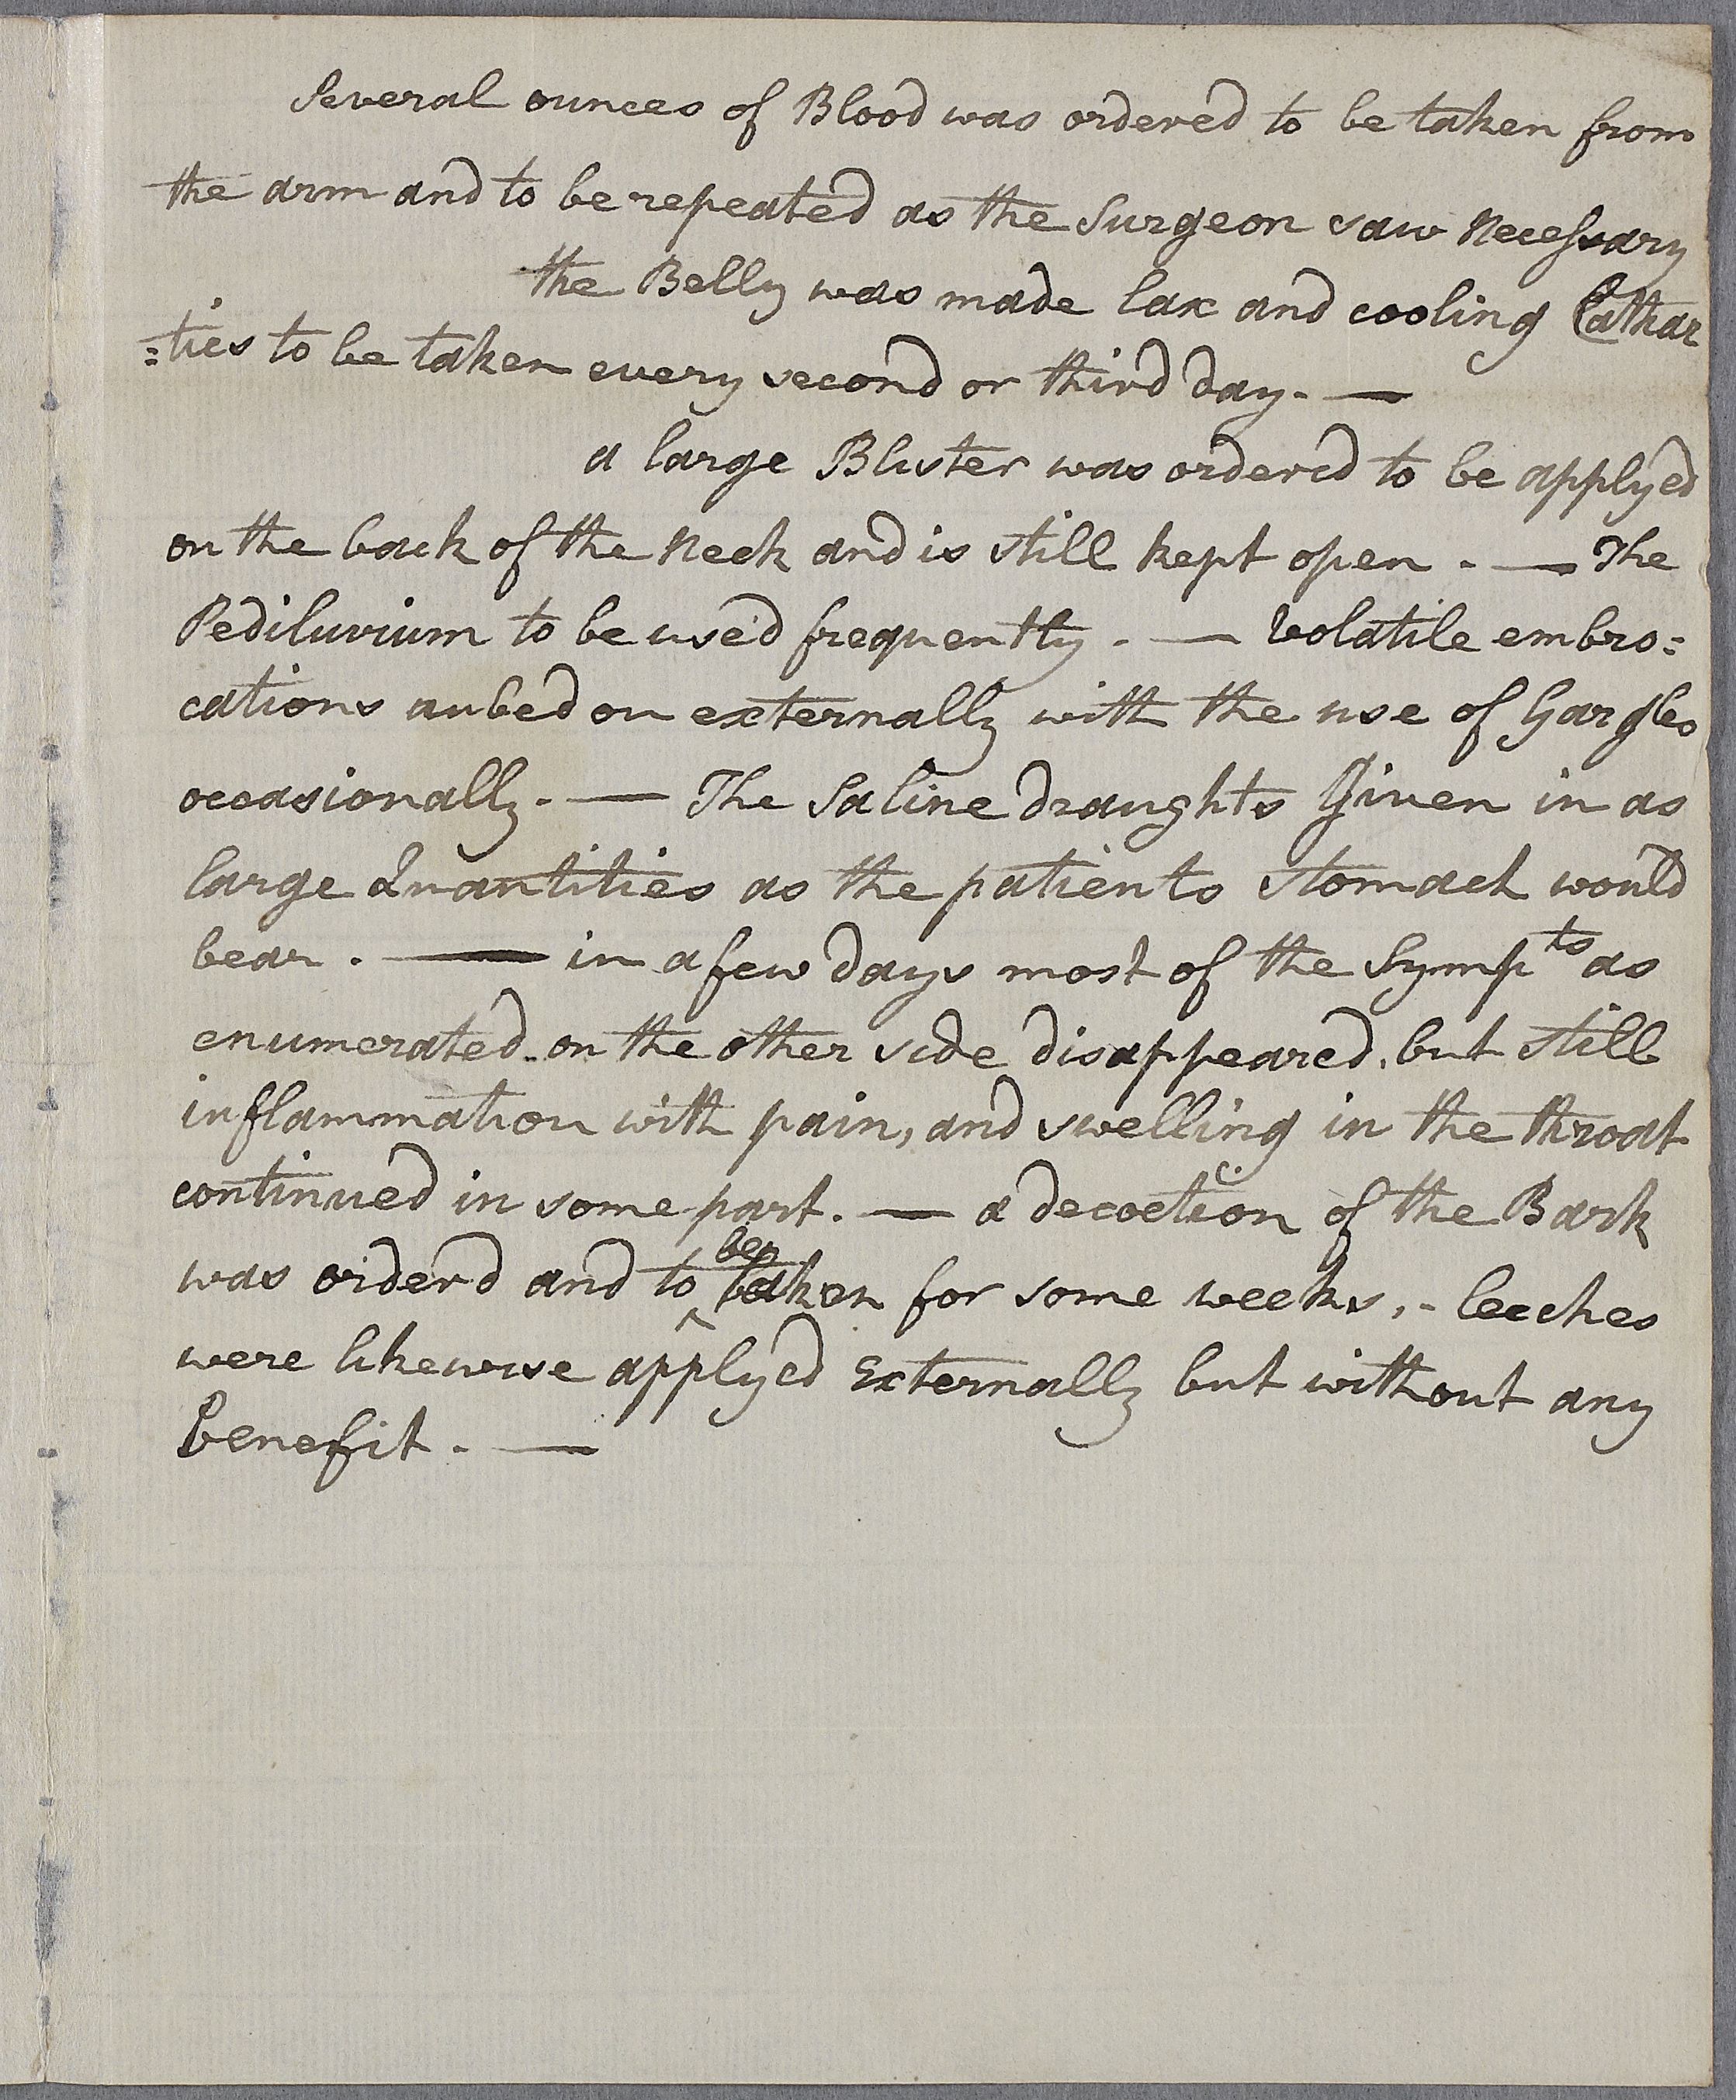 Several ounces of Blood was ordered to be taken from
the arm and to be repeated as the Surgeon saw Necessary
the Belly was made lax and cooling Cathar
=tics to be taken every second or third day. —
a large Blister was ordered to be applyed
on the back of the Neck and is still kept open. — The
Pediluvium to be used frequently. — Volatile embro=
cations rubed on externally with the use of Gargles
occasionally. — The Saline draughts Given in as
large Quantities as the patients stomach would
bear. — in a few days most of the Sympts as
enumerated on the other side disappeared, but still
inflammation with pain, and swelling in the throat
continued in some part. — a decoction of the Bark
was orderd and to be taken for some weeks, - leeches
were likewise applyed Externally but without any
Benefit. —